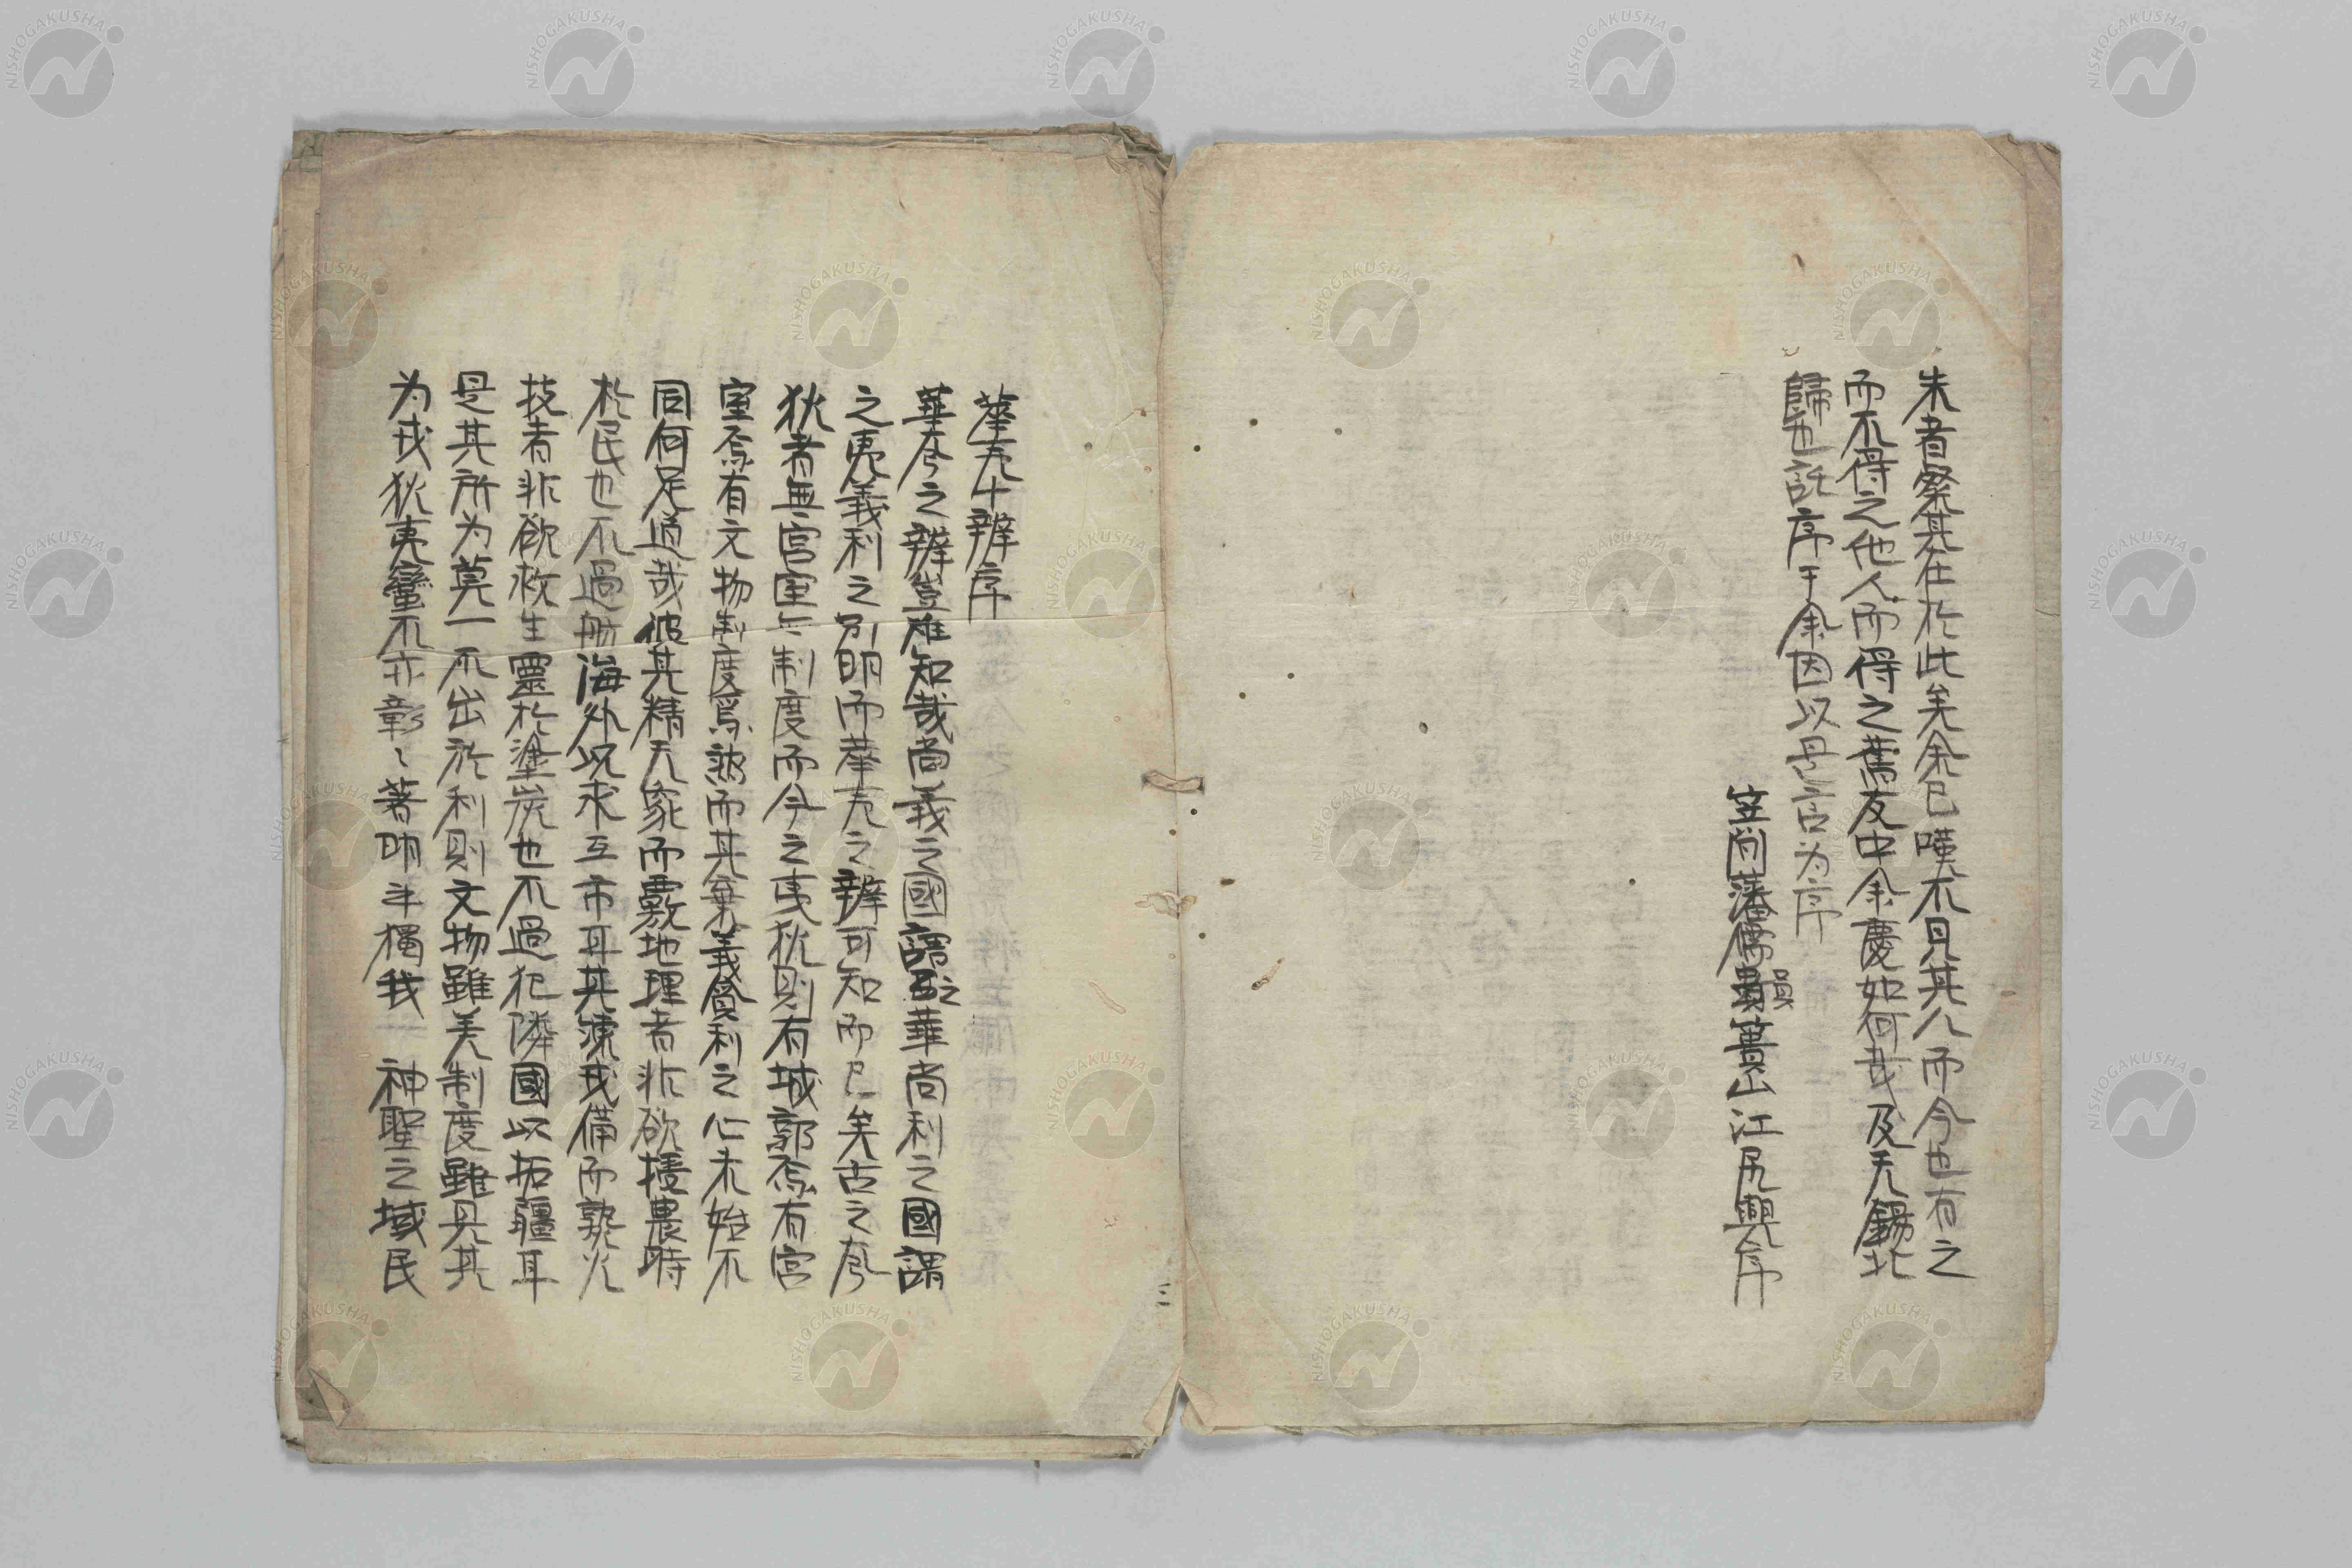 朱者粲其在於此矣余已嘆不見其人而今也有之
而不得之他人而得之舊友中余慶如何哉及天錫北
歸也託序于余因以是言为序
笠間藩儒員 蕢山江尻興序
華夷十辨序
華夷之辨豈难知哉尚義之國謂之華尚利之國謂
之夷義利之別明而華夷之辨可知而已矣古之夷
狄者無宮室無制度而今之夷狄則有城郭焉有宮
室焉有文物制度焉然而其棄義貪利之心未始不
同何足道哉彼其精天象而覈地理者非欲授農時
於民也不過航海外以求互市耳其練戎備而熟火
技者非欲救生靈於塗炭也不過犯隣國以拓疆耳
是其所为莫一不出於利則文物雖美制度雖具其
为戎狄夷蠻不亦彰々著明乎獨我 神聖之域民
三
NISHOGAKUSHA